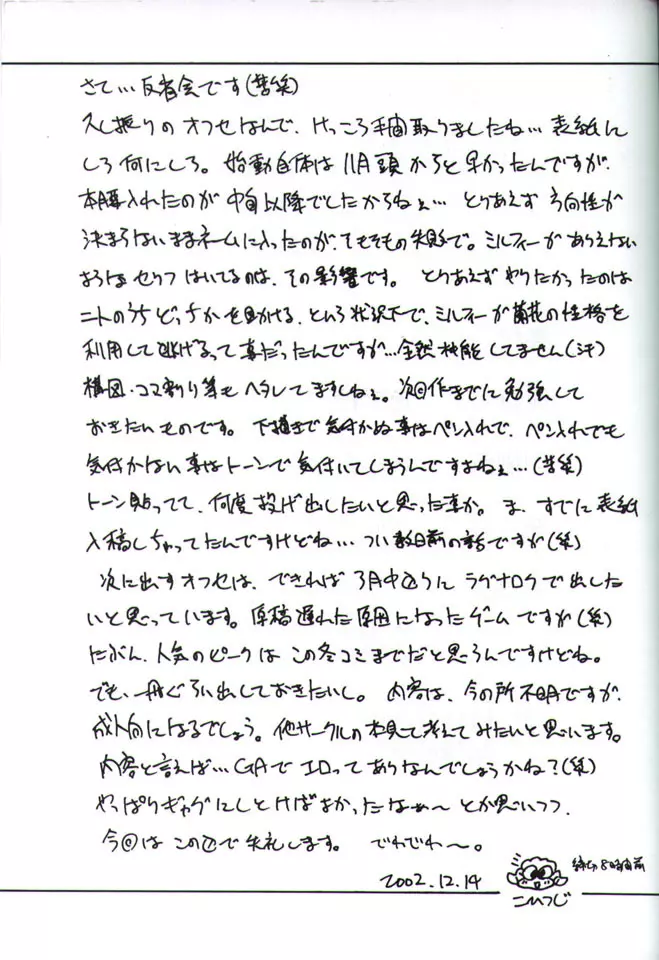 さて…反省会です(苦笑)
久し振りのオフセなんで、けっこう手間取りましたね…表紙に
しろ何にしろ。始動自体は11月頭からと早かったんですが、
本腰入れたのが中旬以降でしたからねぇ… とりあえず方向性が
決まらないままネームに入ったのが、そもそもの失敗で。ミルフィーがありえない
ようなセリフはいてるのは、その影響です。 とりあえずやりたかったのは
ニトのうちどっちかを助ける、という状況下で、ミルフィーが蘭花の性格を
利用して逃げるって事だったんですが…全然機能してません(汗)
構図・コマ割り等もヘタレてますしねぇ。次回作までに勉強して
おきたいものです。下描きで気付かぬ事はペン入れで、ペン入れでも
気付かない事はトーンで気付いてしまうんですよねぇ…(苦笑)
トーン貼ってて、何度投げ出したいと思った事か。ま、すでに表紙
入稿しちゃってたんですけどね…つい数日前の話ですが(笑)
次に出すオフセは、できれば3月中辺りにラグナロクで出した
いと思っています。原稿遅れた原因になったゲームですが(笑)
たぶん、人気のピークはこの冬コミまでだと思うんですけどね。
でも、一冊ぐらい出しておきたいし。内容は、今の所不明ですが、
成人向になるでしょう。他サークルの本見て考えてみたいと思います。
内容と言えば…GAでエロってありなんでしょうかね?(笑)
やっぱりギャグにしとけばよかったなぁ〜とか思いつつ、
今回はこの辺で失礼します。 でわでわ〜。
2002.12.14
締切8時間前
こひつじ